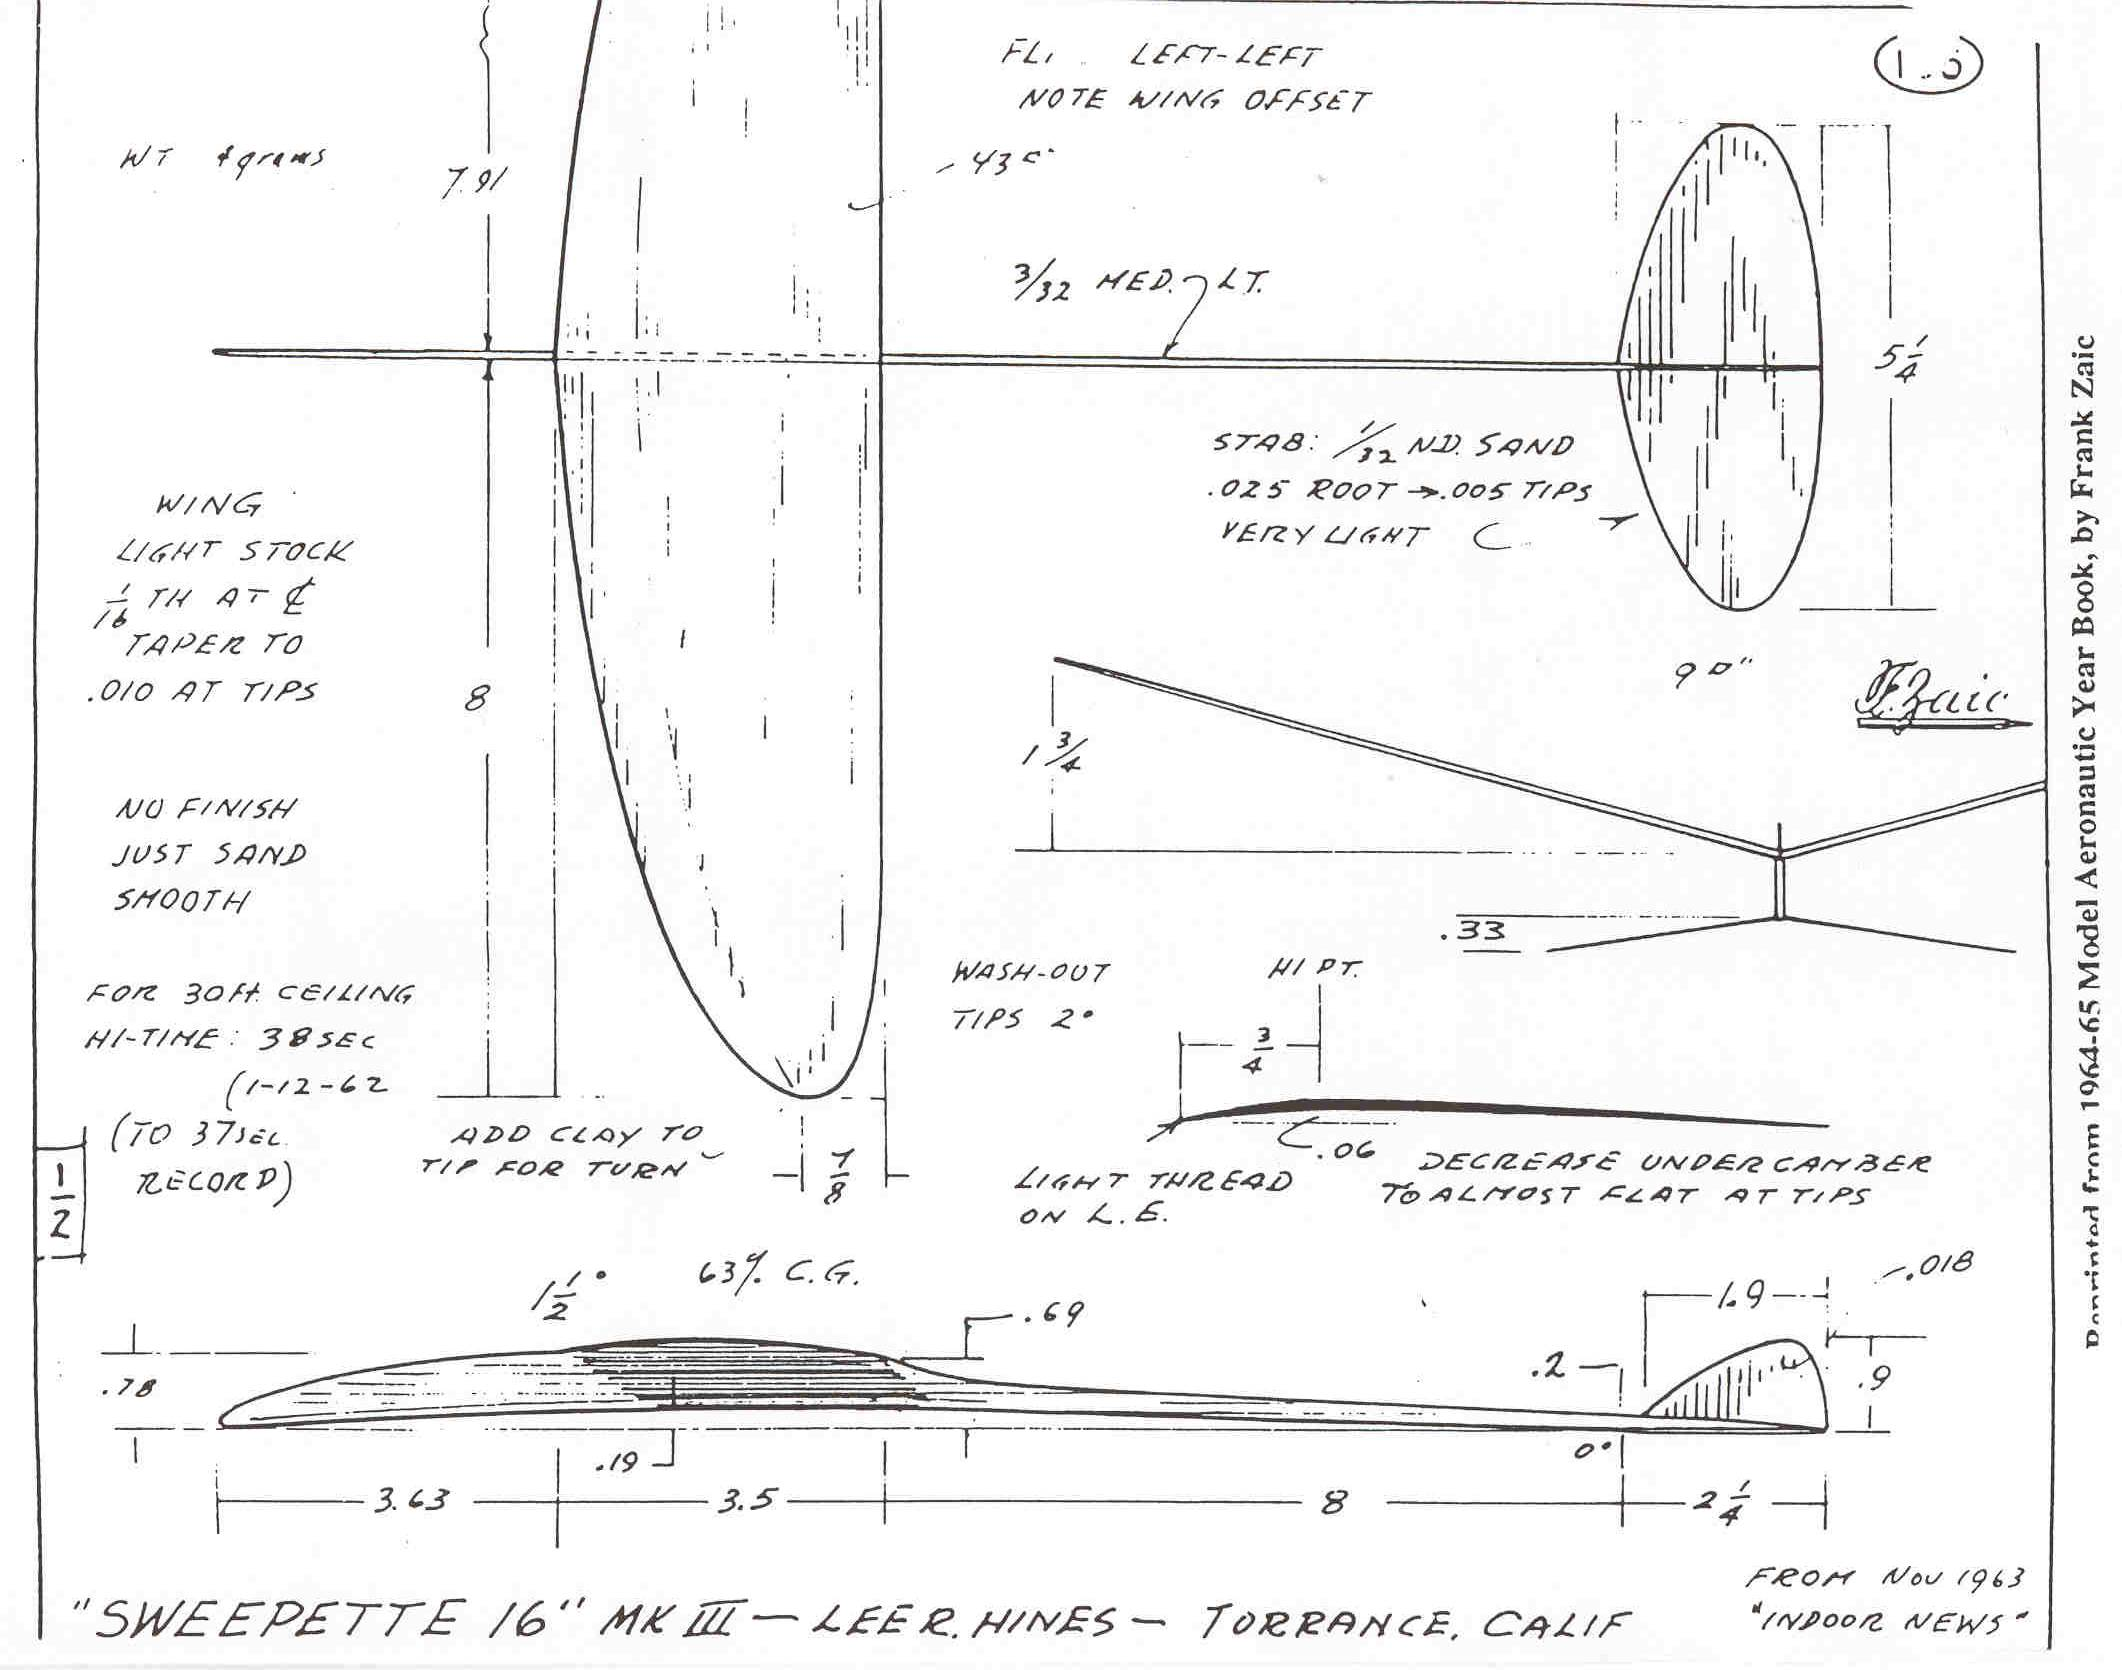 LEFT-LEFT
NOTE WING OFFSET
WT 4 grams
7.91
3/32 MED. LT.
5 1/4
STAB: 1/32 ND. SAND
.025 ROOT → .005 TIPS
VERY LIGHT C
WING
LIGHT STOCK
1/16 TH AT ℄
TAPER TO
.010 AT TIPS
8
NO FINISH
JUST SAND
SMOOTH
FOR 30 ft. CEILING
HI-TIME: 38 SEC
(1-12-62
(TO 37 SEC.
RECORD)
1/2
ADD CLAY TO
TIP FOR TURN
7/8
90"
F. Zaic
1 3/4
.33
WASH-OUT
TIPS 2°
HI PT.
3/4
.06
LIGHT THREAD
ON L.E.
DECREASE UNDERCAMBER
TO ALMOST FLAT AT TIPS
1 1/2°
63% C.G.
.69
.78
.19
.2
1.9
.018
.9
0°
3.63
3.5
8
2 1/4
"SWEEPETTE 16" MK III — LEE R. HINES — TORRANCE, CALIF
FROM NOV 1963
"INDOOR NEWS"
Reprinted from 1964-65 Model Aeronautic Year Book, by Frank Zaic